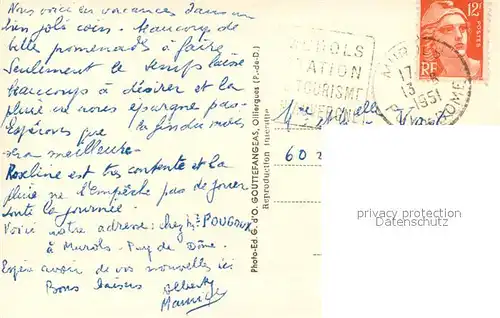 Nous voici en vacances dans un
bien joli coin. Beaucoup de
belles promenades à faire
Seulement le temps laisse
beaucoup à désirer et la
pluie ne nous épargne pas
Espérons que la fin du mois
sera meilleure.
Roseline est très contente et la
pluie ne l'empêche pas de jouer
toute la journée.
Voici notre adresse: chez Mr POUGOUX
à Murols - Puy de Dôme.
Espère avoir de vos nouvelles ici
Bons baisers Alberte
Maurice
Photo-Ed. G. d'O. GOUTTEFANGEAS, Olliergues (P.-de-D.)
Reproduction interdite
MUROLS
STATION
TOURISME
AUVERGNE
MUROLS
17
13
1951
DOME
12F
POSTES
RF
60
privacy protection
Datenschutz